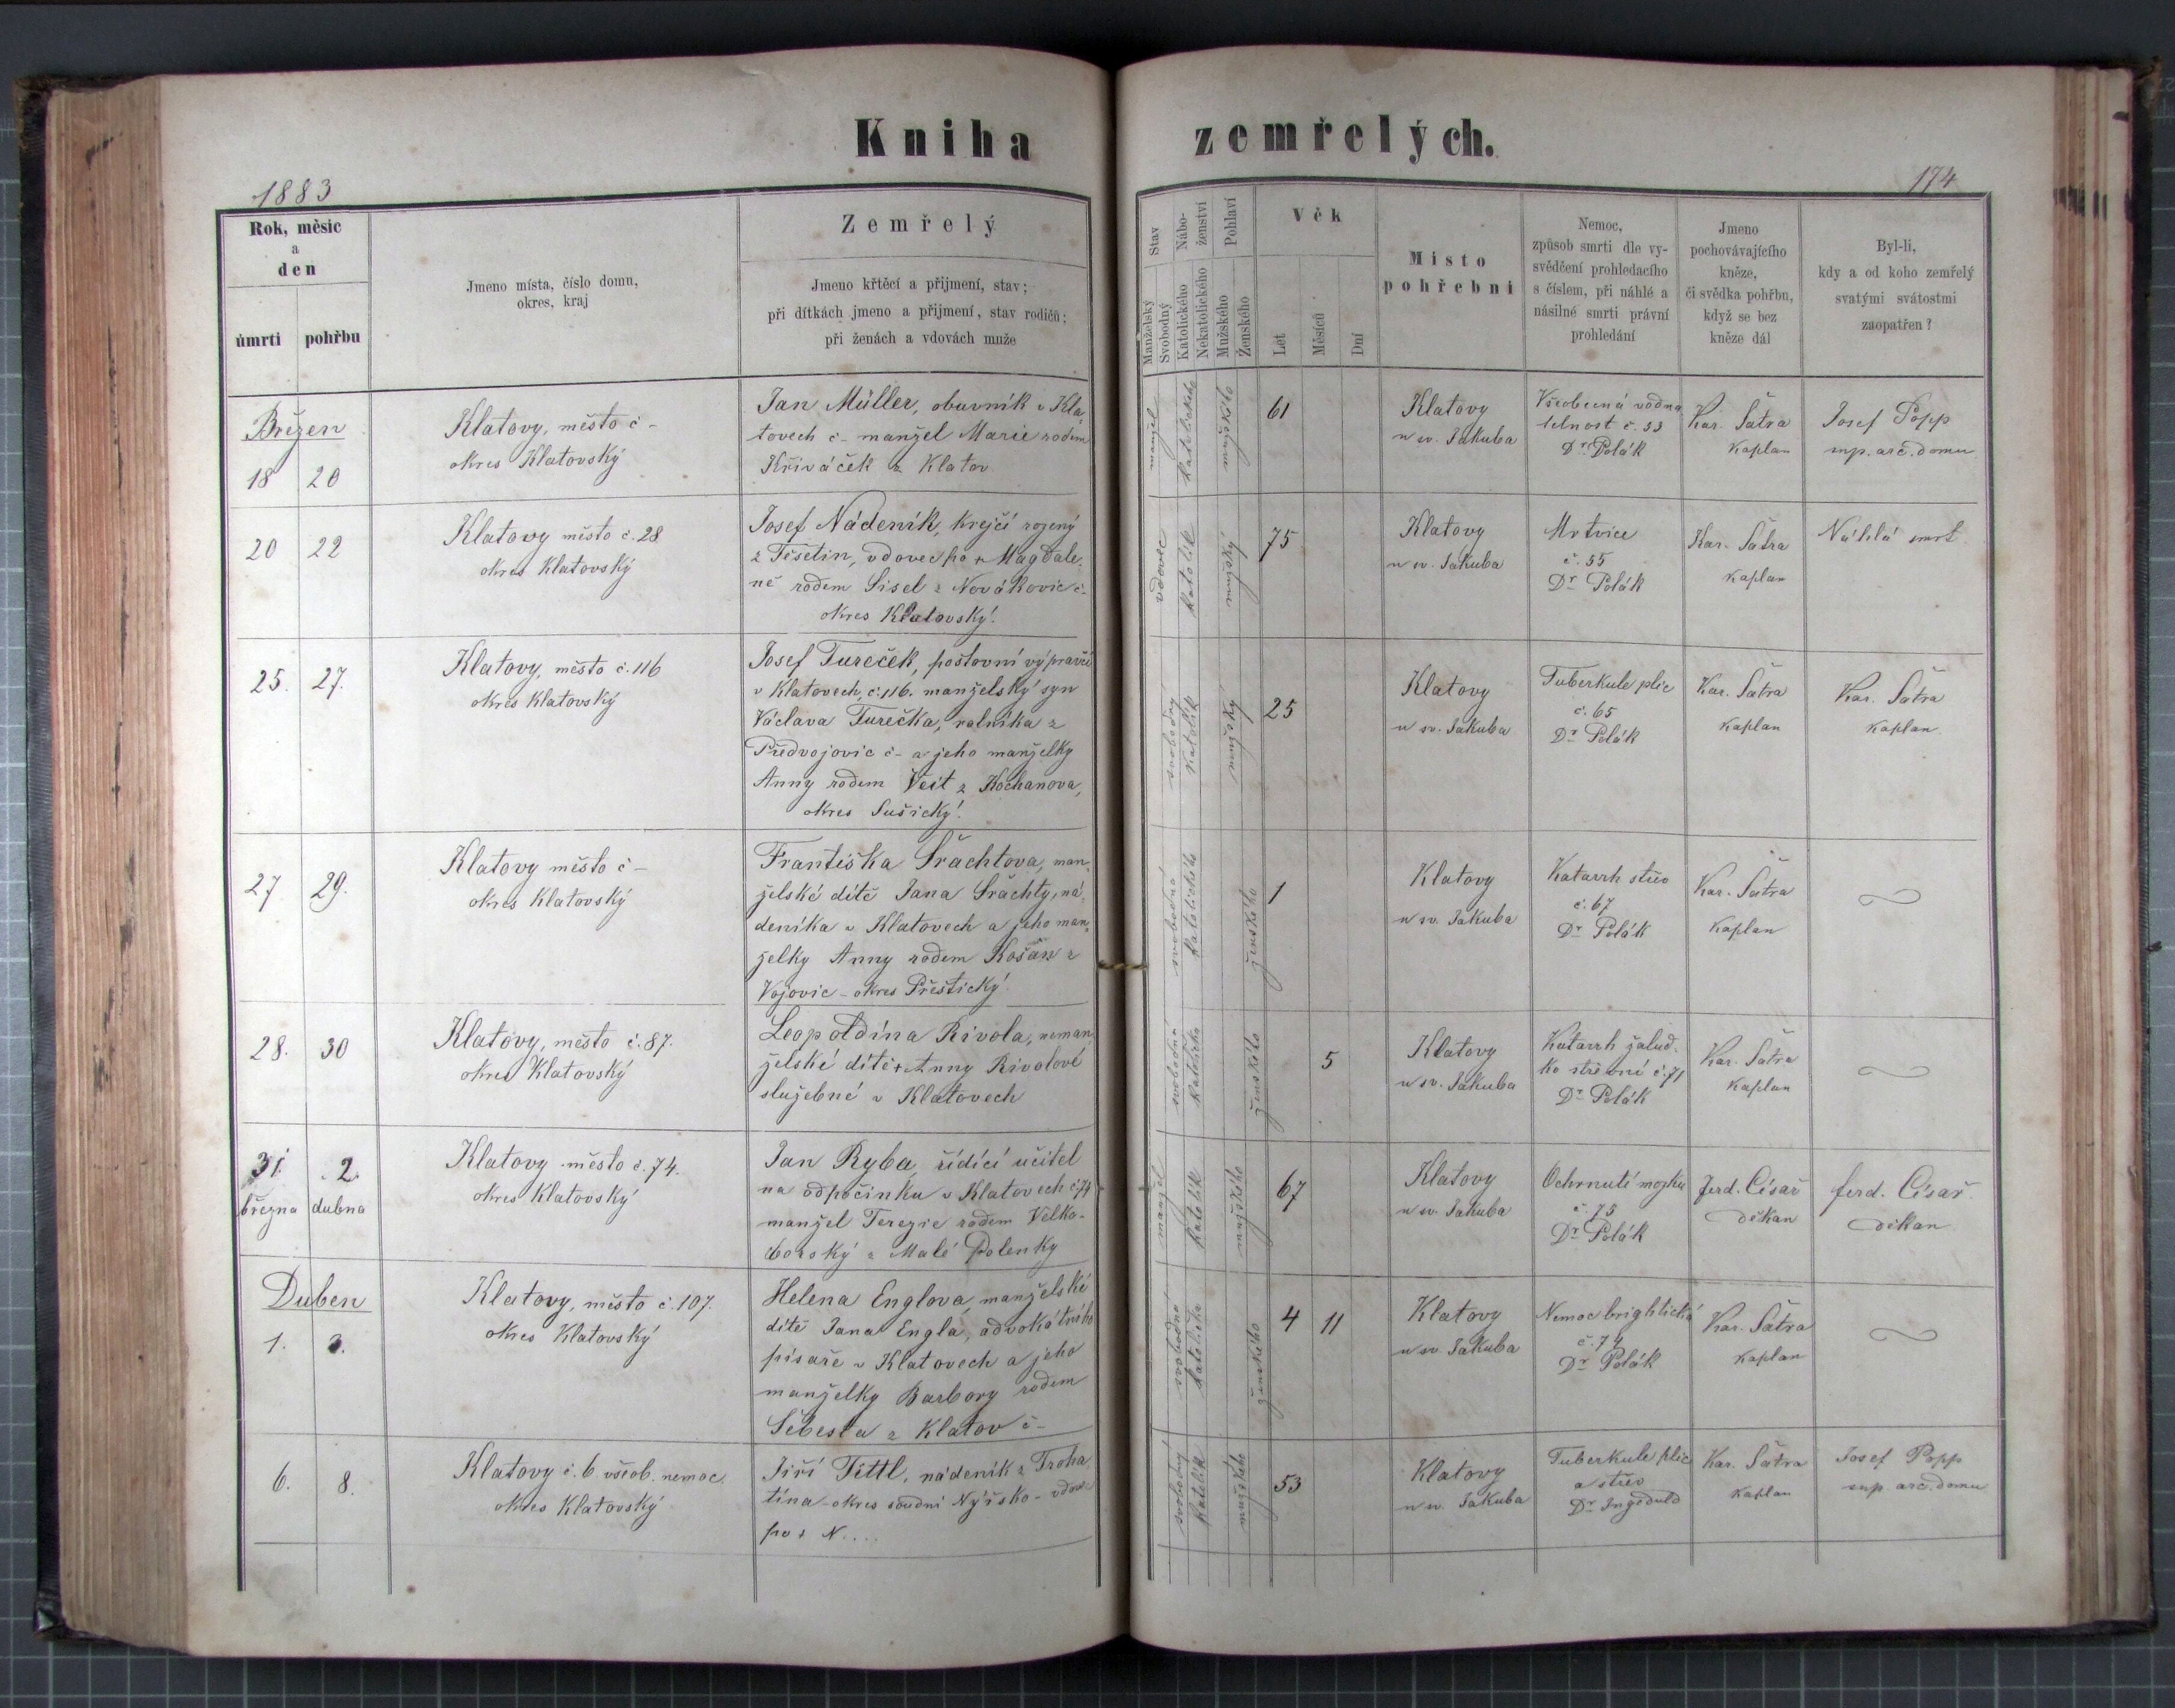 Kniha zemřelých.
1883
174
Rok, měsíc
a
den
úmrtí pohřbu
Jmeno místa, číslo domu,
okres, kraj
Zemřelý
Jmeno křtěcí a přijmení, stav;
při dítkách jmeno a přijmení, stav rodičů;
při ženách a vdovách muže
Stav
Manželský
Svobodný
Nábo-
ženství
Katolického
Nekatolického
Pohlaví
Mužského
Ženského
Věk
Let
Měsíců
Dní
Místo
pohřební
Nemoc,
způsob smrti dle vy-
svědčení prohledacího
s číslem, při náhlé a
násilné smrti právní
prohledání
Jmeno
pochovávajícího
kněze,
či svědka pohřbu,
když se bez
kněze dál
Byl-li,
kdy a od koho zemřelý
svatými svátostmi
zaopatřen?
Březen
18 20
Klatovy, město č –
okres Klatovský
Jan Müller, obuvník v Kla-
tovech č – manžel Marie rodem
Křiváček z Klatov
manžel
katolického
mužského
61
Klatovy
u sv. Jakuba
Všeobecná vodna-
telnost č. 53
Dr. Polák
Kar. Šatra
kaplan
Josef Popp
sup. arc. domu
20 22
Klatovy město č. 28
okres Klatovský
Josef Nádeník, krejčí rozený
z Těšetin, vdovec po + Magdale-
ně rodem Sisel z Novákovic č-
okres Klatovský.
vdovec
katolík
mužský
75
Klatovy
u sv. Jakuba
Mrtvice
č. 55
Dr. Polák
Kar. Šatra
kaplan
Náhlá smrt.
25. 27.
Klatovy, město č. 116
okres Klatovský
Josef Tureček, poštovní výpravčí
v Klatovech, č. 116. manželský syn
Václava Turečka, rolníka z
Předvojovic č – a jeho manželky
Anny rodem Veit z Kochanova,
okres Sušický.
svobodný
katolík
mužský
25
Klatovy
u sv. Jakuba
Tuberkule plic
č. 65
Dr. Polák
Kar. Šatra
kaplan
Kar. Šatra
kaplan.
27 29.
Klatovy město č –
okres Klatovský
Františka Šrachtova, man-
želské dítě Jana Šrachty, ná-
deníka v Klatovech a jeho man-
želky Anny rodem Košan z
Vojovic – okres Přeštický
svobodná
katolického
ženského
1
Klatovy
u sv. Jakuba
Katarrh střev
č. 67
Dr. Polák
Kar. Šatra
kaplan
28. 30
Klatovy, město č. 87.
okres Klatovský
Leopoldina Rivola, neman-
želské dítě + Anny Rivolové
služebné v Klatovech
svobodná
katolička
ženského
5
Klatovy
u sv. Jakuba
Katarrh žalud-
ko střevní č. 71
Dr. Polák
Kar. Šatra
kaplan
31. 2.
března dubna
Klatovy město č. 74.
okres Klatovský
Jan Ryba, řídící učitel
na odpočinku v Klatovech č 74
manžel Terezie rodem Velko-
borský z Malé Polenky
manžel
katolík
mužského
67
Klatovy
u sv. Jakuba
Ochrnutí mozku
č. 75
Dr. Polák
Ferd. Císař
děkan
ferd. Císař.
děkan
Duben
1. 3.
Klatovy, město č. 107.
okres Klatovský
Helena Englova, manželské
dítě Jana Engla, advokátního
písaře v Klatovech a jeho
manželky Barbory rodem
Šebesta z Klatov č –
svobodná
katolička
ženského
4 11
Klatovy
u sv. Jakuba
Nemoc brightická
č. 74
Dr. Polák
Kar. Šatra
kaplan
6. 8.
Klatovy č. 6 všeob. nemoc.
okres Klatovský
Jiří Tittl, nádeník z Troha-
tína – okres soudní Nýrsko – vdovec
po + N....
svobodný
katolík
mužského
53
Klatovy
u sv. Jakuba
Tuberkule plic
a střev
Kar. Šatra
kaplan
Josef Popp
sup. arc. domu